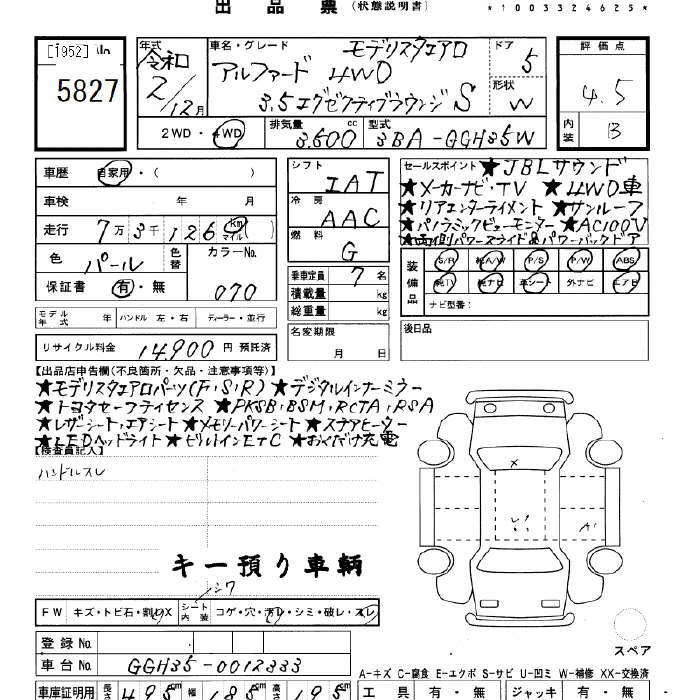 出品票 (状態説明書)
*1003324625*
[1952]
5827
年式 令和 2/12月
車名・グレード モデリスタエアロ
アルファード 4WD
3.5エグゼクティブラウンジS
ドア 5
形状 W
評価点 4.5
内装 B
2WD・4WD
排気量 3,500 cc
型式 3BA-GGH35W
車歴 自家用・( )
車検 年 月
走行 7万3千126 km マイル ( )
色 パール 色替
カラーNo. 070
保証書 有・無
モデル年式 年 ハンドル 左・右 ディーラー・並行
リサイクル料金 14,900 円 預託済
シフト IAT
冷房 AAC
燃料 G
乗車定員 7 名
積載量 kg
総重量 kg
名変期限 月 日
セールスポイント ★JBLサウンド
★メーカーナビ・TV ★4WD車
★リアエンターテイメント ★サンルーフ
★パノラミックビューモニター ★AC100V
★両側パワースライド&パワーバックドア
装備品 S/R 純A/W P/S P/W ABS
純TV 純ナビ 革シート 外ナビ エアB
ナビ型番:
後日品
【出品店申告欄(不良箇所・欠品・注意事項等)】
★モデリスタエアロパーツ(F,S,R) ★デジタルインナーミラー
★トヨタセーフティセンス ★PKSB,BSM,RCTA,RSA
★レザーシート,エアシート ★メモリーパワーシート ★ステアヒーター
★LEDヘッドライト ★ビルトインETC ★おくだけ充電
【検査員記入】
ハンドルスレ
キー預り車輌
シワ
FW キズ・トビ石・割レX シート内装 コゲ・穴・汚レ・シミ・破レ・スレ
登録No.
車台No. GGH35-0012333
車庫証明用 長さ 495 cm 幅 185 cm 高さ 195 cm
X
A1
スペア
A-キズ C-腐食 E-エクボ S-サビ U-凹ミ W-補修 XX-交換済
工具 有・無 ジャッキ 有・無